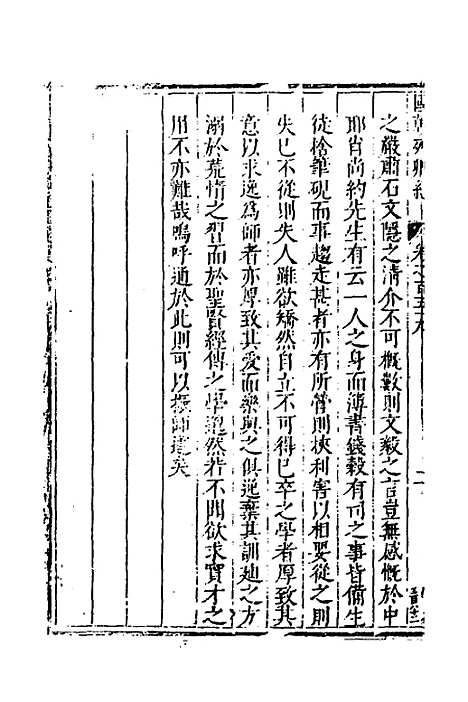 國朝列卿紀 卷之一百五十九
之嚴肅石文隱之清介不可概數則文毅之言豈無感慨於中
耶肖尚約先生有云一人之身而簿書錢穀有司之事皆備生
徒捨筆硯而事趨走甚者亦有所嘗則挾利害以相要從之則
失巳不從則失人雖欲矯然自立不可得巳卒之學者厚致其
意以求逸為師者亦厚致其愛而樂與之俱逆棄其訓廸之方
溺於荒惰之習而於聖賢經傳之學邈然若不聞欲求實才之
用不亦難哉嗚呼通於此則可以振師道矣